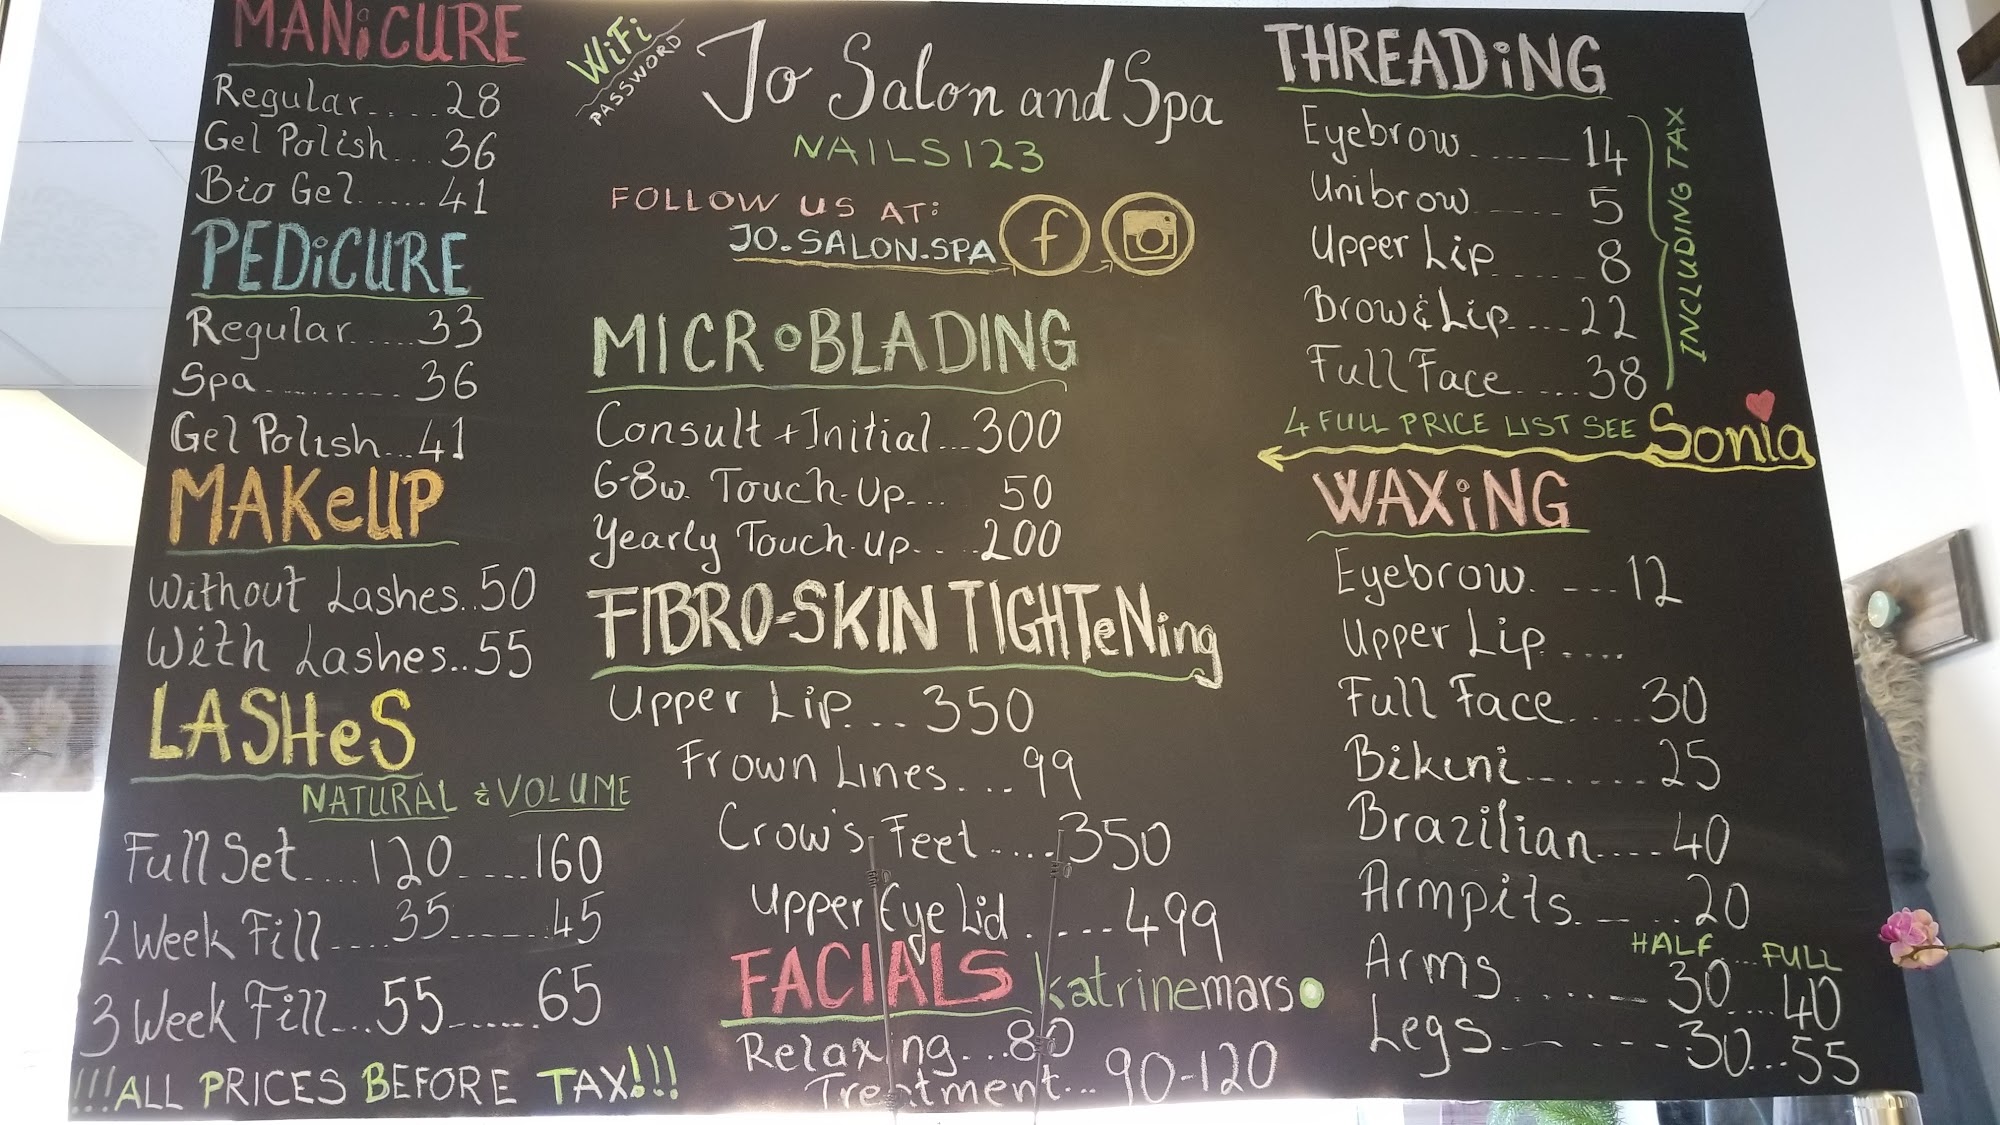 MANiCURE
Regular.....28
Gel Polish...36
Bio Gel.....41
PEDiCURE
Regular.....33
Spa.........36
Gel Polish...41
MAKeUP
Without Lashes..50
With Lashes..55
LASHeS
NATURAL & VOLUME
Full Set....120.....160
2 Week Fill....35......45
3 Week Fill...55......65
!!!ALL PRICES BEFORE TAX!!!
WiFi
PASSWORD
Jo Salon and Spa
NAILS123
FOLLOW US AT:
JO.SALON.SPA f
MICRoBLADING
Consult + Initial...300
6-8w. Touch-Up... 50
Yearly Touch-up....200
FIBRO-SKIN TIGHTeNing
Upper Lip...350
Frown Lines....99
Crow's Feet.....350
Upper Eye Lid.----499
FACIALS katrinemars
Relaxing...80
Treatment...90-120
THREADiNG
Eyebrow......14
Unibrow.....5
Upper Lip.....8
Brow & Lip....22
Full Face.....38
INCLUDING TAX
4 FULL PRICE LIST SEE Sonia
WAXiNG
Eyebrow. ----12
Upper Lip....
Full Face....30
Bikini......25
Brazilian....40
Armpits.....20
HALF....FULL
Arms.......30....40
Legs-------30...55